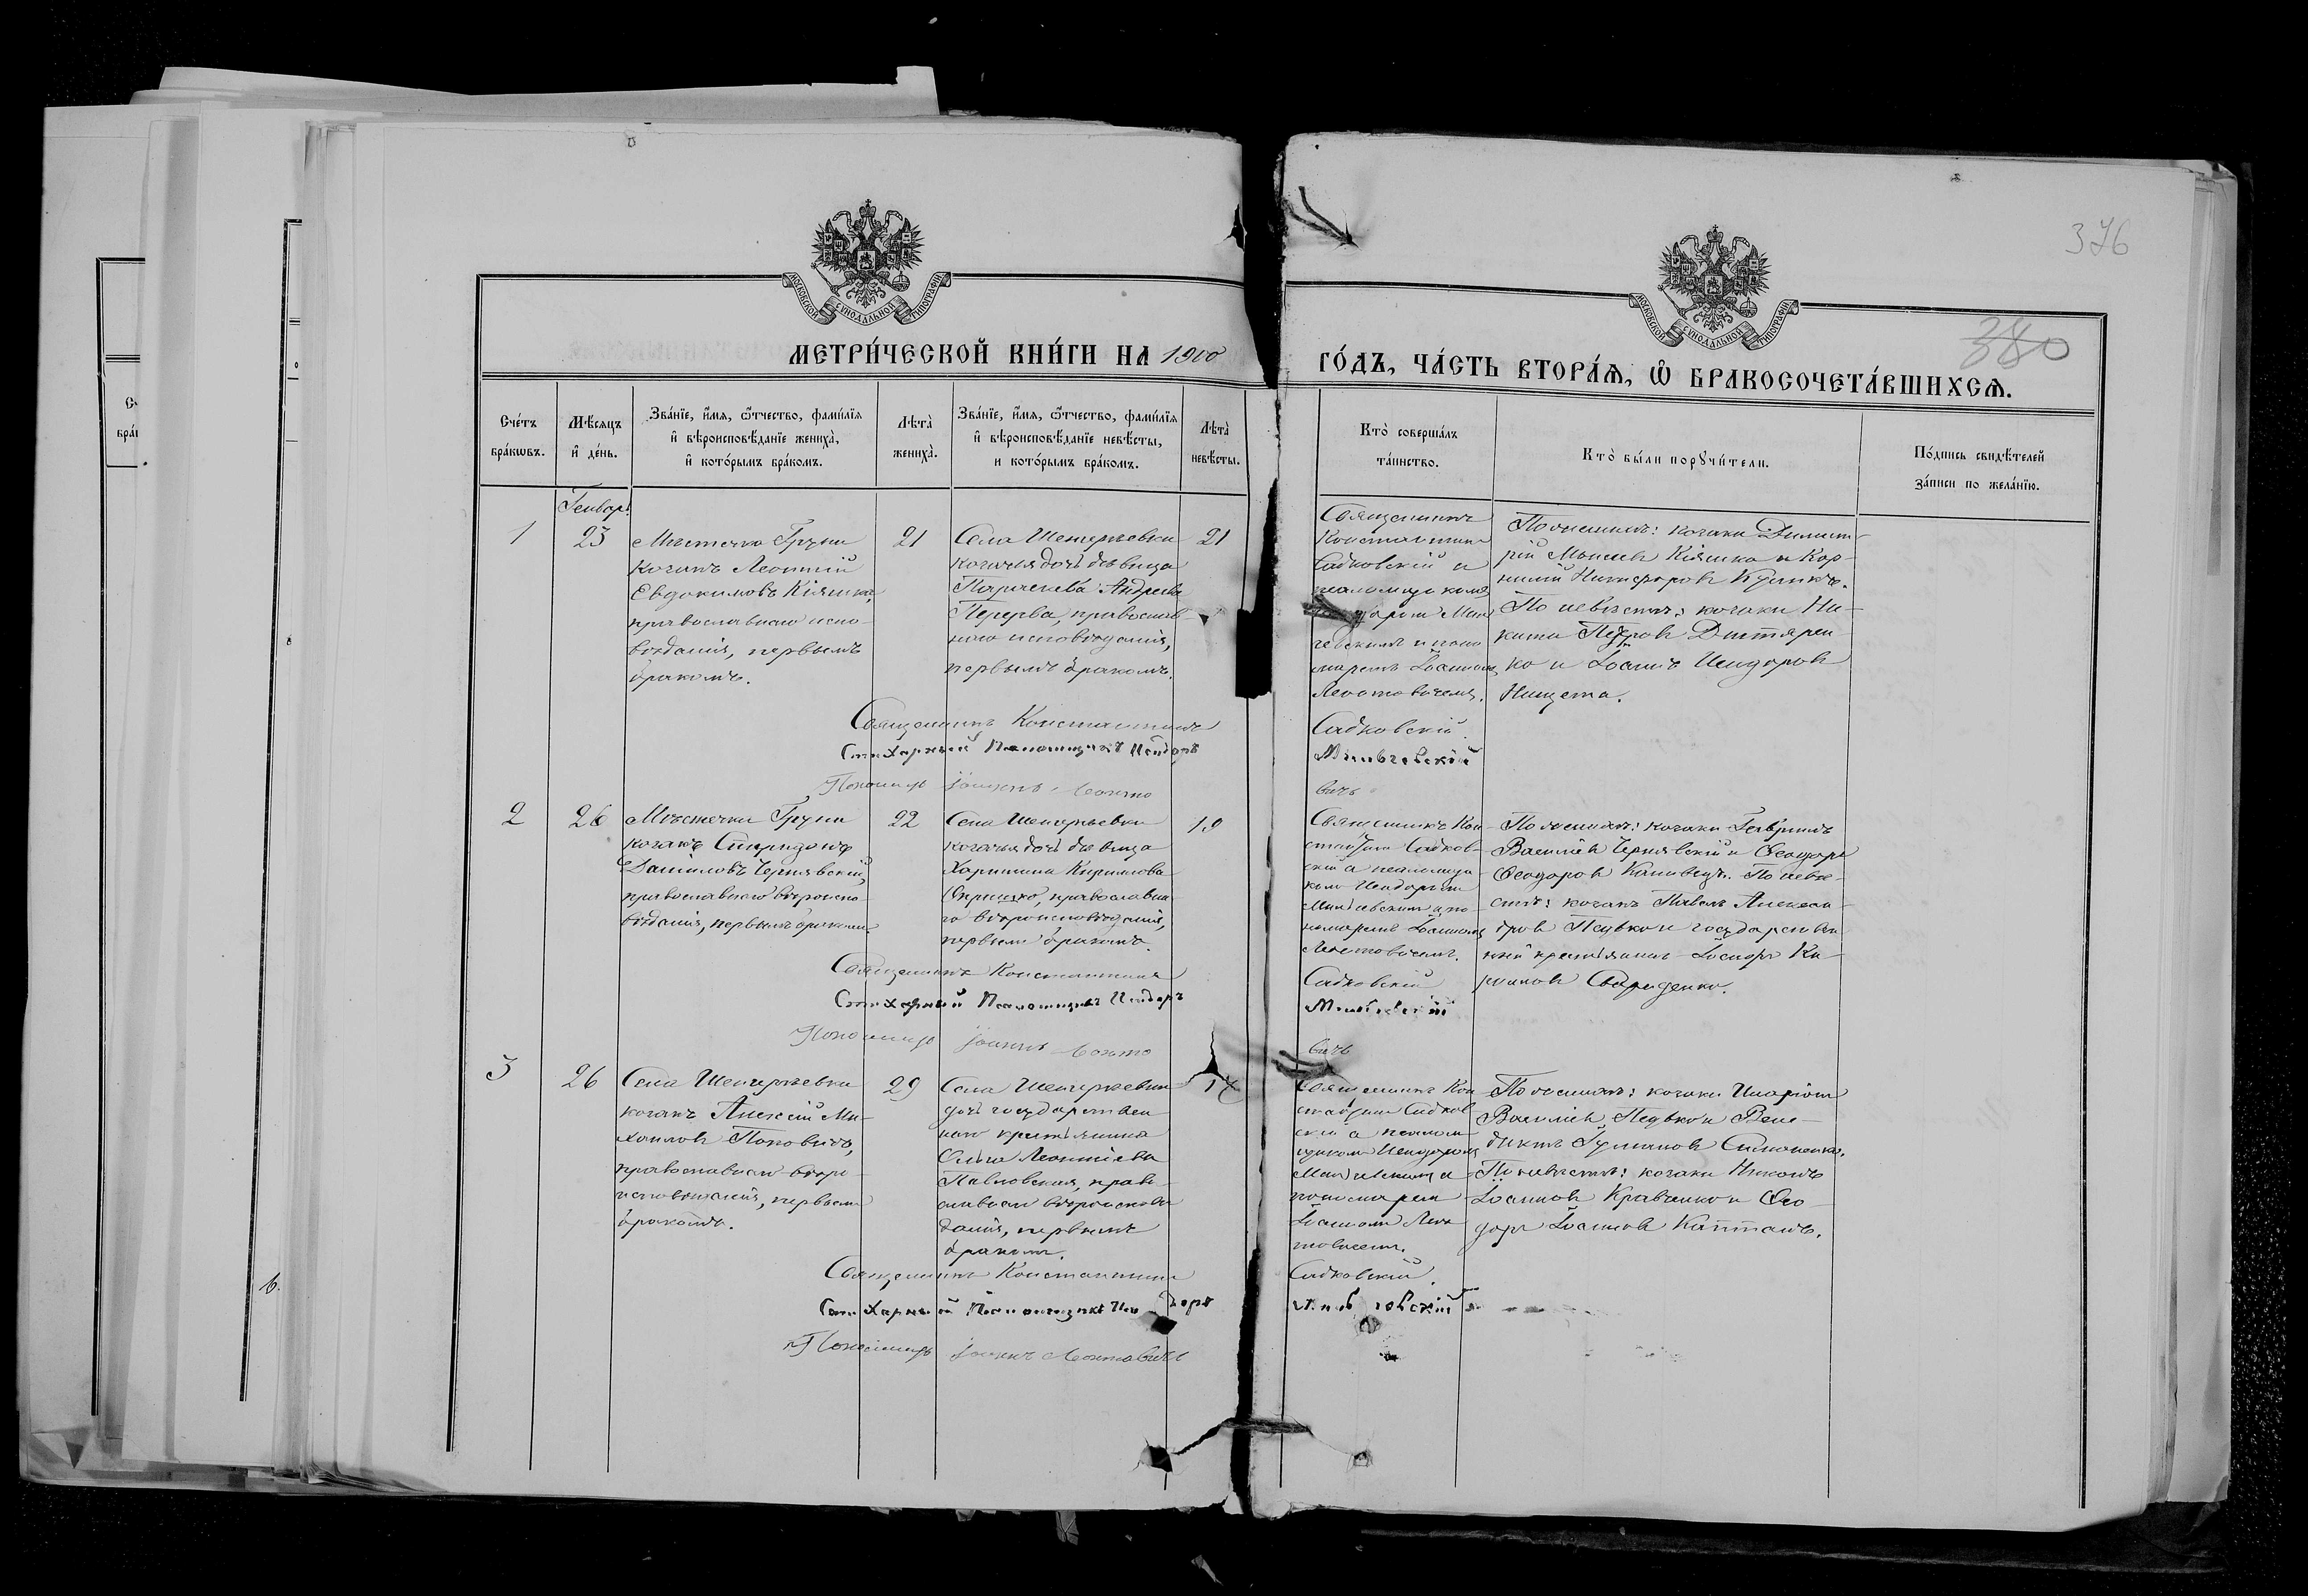 376
380
МОСКОВСКОЙ СѴНОДАЛЬНОЙ ТИПОГРАФІИ
МОСКОВСКОЙ СѴНОДАЛЬНОЙ ТИПОГРАФІИ
МЕТРИ́ЧЕСКОЙ КНИ́ГИ НА 1900
ГО́ДЪ, ЧА́СТЬ ВТОРА́Ѧ, Ѽ БРАКОСОЧЕТА́ВШИХСѦ.
Сче́тъ
бра́кѡвъ.
Мѣ́сяцъ
и҆ де́нь.
Зва́нїе, и҆́мѧ, ѻ҆́тчество, фами́лїѧ
и҆ вѣроисповѣ́данїе жениха̀,
и҆ кото́рымъ бра́комъ.
Лѣта̀
жениха̀.
Зва́нїе, и҆́мѧ, ѻ҆́тчество, фами́лїѧ
и҆ вѣроисповѣ́данїе невѣ́сты,
и кото́рымъ бра́комъ.
Лѣта̀
невѣ́сты.
Кто̀ соверша́лъ
та́инство.
Кто̀ бы́ли порꙋчи́тели.
По́дпись свидѣ́телей
за́писи по жела́нїю.
Генвар.
1
23
Мѣстечка Груни
козакъ Леонтій
Евдокимовъ Кіяшка,
православнаго испо-
вѣданія, первымъ
бракомъ.
21
Села Шенгерѣевки
козачья дочь дѣвица
Параскева Андреева
Перерва, православ-
наго исповѣданія,
первымъ бракомъ.
21
Священникъ
Константинъ
Садковскій и
псаломщикомъ
номаремъ Іоанномъ
Леонтовичемъ.
По женихѣ: козаки Димит-
рій Моисеевъ Кіяшка и Кор-
нилій Никифоровъ
По невѣстѣ: козаки Ни-
кита Петровъ Дигтярен-
ко и Іоаннъ Исидоровъ
Нищета.
Священникъ Константинъ Садковскій.
Стихарный Псаломщикъ Исидоръ
Пономарь Іоаннъ Леонтовичъ
2
26
Мѣстечка Груни
козакъ Спиридонъ
Даниловъ Чернявскій,
православнаго вѣроиспо-
вѣданія, первымъ бракомъ.
22
Села Шенгерѣевки
козачья дочь дѣвица
Харитина Кириллова
православна-
го вѣроисповѣданія,
первымъ бракомъ.
19
Священникъ Кон-
стантинъ Садков-
скій и псаломщи-
комъ Исидоромъ
и по-
номаремъ Іоанномъ
Леонтовичемъ.
По женихѣ: козаки Гавріилъ
Василіевъ Чернявскій и Ѳеодоръ
Ѳеодоровъ По невѣ-
стѣ: козакъ Павелъ Александ-
ровъ Педько и государствен-
ный крестьянинъ Іосифъ Ки-
рилловъ
Священникъ Константинъ Садковскій
Стихарный Псаломщикъ Исидоръ
Пономарь Іоаннъ Леонтовичъ
3
26
Села Шенгерѣевки
козакъ Алексій Ми-
хаиловъ Поповичъ,
православнаго вѣро-
исповѣданія, первымъ
бракомъ.
29
Села Шенгерѣевки
дочь государствен-
наго крестьянина
Ольга Леонтіева
Павловская, право-
славнаго вѣроисповѣ-
данія, первымъ
бракомъ.
Священникъ Кон-
стантинъ Садков-
скій и псалом-
щикомъ Исидоромъ
и
пономаремъ
Іоанномъ Леон-
товичемъ.
По женихѣ: козаки Иларіонъ
Василіевъ Педько и Вене-
диктъ Симоненко.
По невѣстѣ: козаки Никонъ
Іоанновъ Кравченко и Ѳео-
доръ Іоанновъ Каптанъ.
Священникъ Константинъ Садковскій.
Стихарный Псаломщикъ Исидоръ
Пономарь Іоаннъ Леонтовичъ